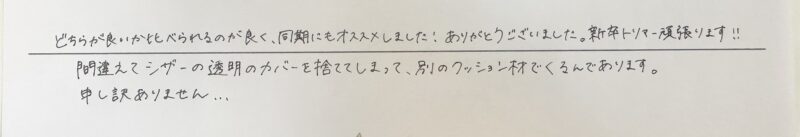 どちらが良いか比べられるのが良く、同期にもオススメしました！ありがとうございました。新卒トリマー頑張ります！！
間違えてシザーの透明のカバーを捨ててしまって、別のクッション材でくるんであります。
申し訳ありません…